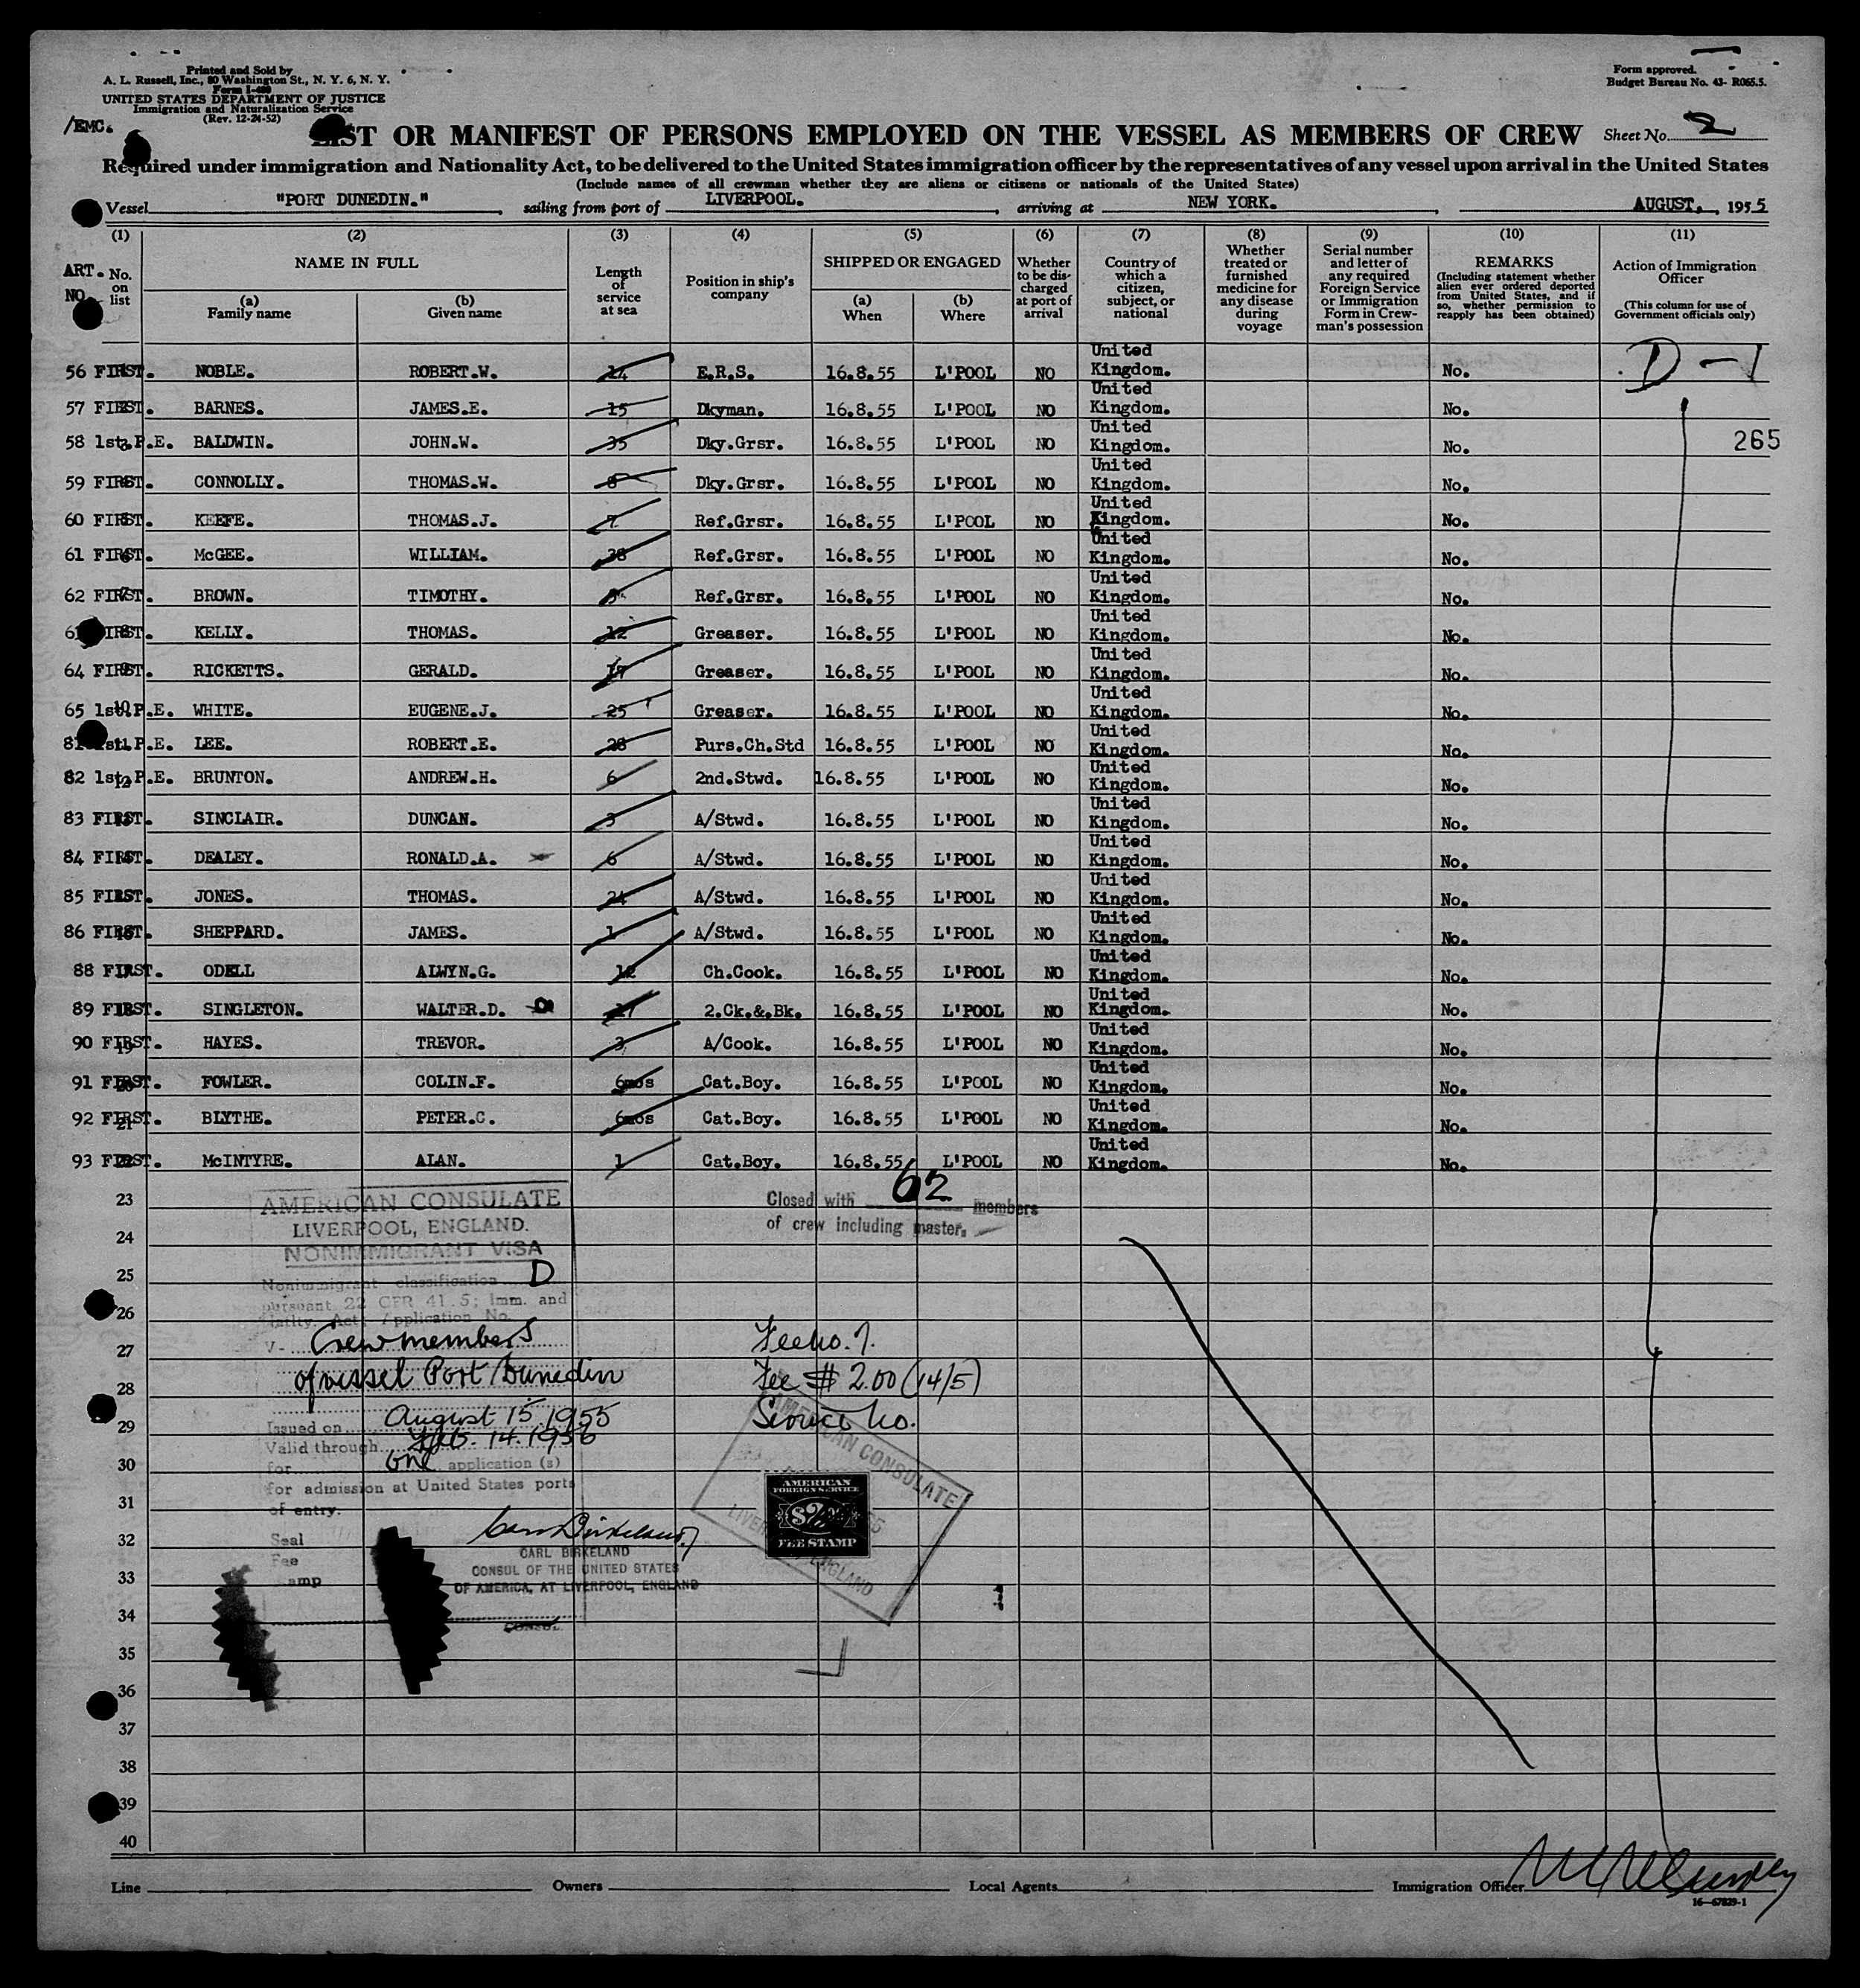 Printed and Sold by
A. L. Russell, Inc., 80 Washington St., N. Y. 6, N. Y.
Form I-480
UNITED STATES DEPARTMENT OF JUSTICE
Immigration and Naturalization Service
(Rev. 12-24-52)
Form approved.
Budget Bureau No. 43- R065.5.
/EMC.
LIST OR MANIFEST OF PERSONS EMPLOYED ON THE VESSEL AS MEMBERS OF CREW Sheet No. 2
Required under immigration and Nationality Act, to be delivered to the United States immigration officer by the representatives of any vessel upon arrival in the United States
(Include names of all crewman whether they are aliens or citizens or nationals of the United States)
Vessel "PORT DUNEDIN." , sailing from port of LIVERPOOL. , arriving at NEW YORK. , AUGUST. , 1955
(1) (2) (3) (4) (5) (6) (7) (8) (9) (10) (11)
ART. NO. No. on list
NAME IN FULL (a) Family name (b) Given name
Length of service at sea
Position in ship's company
SHIPPED OR ENGAGED (a) When (b) Where
Whether to be discharged at port of arrival
Country of which a citizen, subject, or national
Whether treated or furnished medicine for any disease during voyage
Serial number and letter of any required Foreign Service or Immigration Form in Crewman's possession
REMARKS (Including statement whether alien ever ordered deported from United States, and if so, whether permission to reapply has been obtained)
Action of Immigration Officer (This column for use of Government officials only)
56 FIRST. NOBLE. ROBERT.W. 14 E.R.S. 16.8.55 L'POOL NO United Kingdom. No. D-1
57 FIRST. BARNES. JAMES.E. 15 Dkyman. 16.8.55 L'POOL NO United Kingdom. No.
58 1st.P.E. BALDWIN. JOHN.W. 35 Dky.Grsr. 16.8.55 L'POOL NO United Kingdom. No. 265
59 FIRST. CONNOLLY. THOMAS.W. 8 Dky.Grsr. 16.8.55 L'POOL NO United Kingdom. No.
60 FIRST. KEEFE. THOMAS.J. 7 Ref.Grsr. 16.8.55 L'POOL NO United Kingdom. No.
61 FIRST. McGEE. WILLIAM. 38 Ref.Grsr. 16.8.55 L'POOL NO United Kingdom. No.
62 FIRST. BROWN. TIMOTHY. Ref.Grsr. 16.8.55 L'POOL NO United Kingdom. No.
FIRST. KELLY. THOMAS. 12 Greaser. 16.8.55 L'POOL NO United Kingdom. No.
64 FIRST. RICKETTS. GERALD. Greaser. 16.8.55 L'POOL NO United Kingdom. No.
65 1st.P.E. WHITE. EUGENE.J. 25 Greaser. 16.8.55 L'POOL NO United Kingdom. No.
81 1st.P.E. LEE. ROBERT.E. 28 Purs.Ch.Std 16.8.55 L'POOL NO United Kingdom. No.
82 1st.P.E. BRUNTON. ANDREW.H. 6 2nd.Stwd. 16.8.55 L'POOL NO United Kingdom. No.
83 FIRST. SINCLAIR. DUNCAN. 3 A/Stwd. 16.8.55 L'POOL NO United Kingdom. No.
84 FIRST. DEALEY. RONALD.A. 6 A/Stwd. 16.8.55 L'POOL NO United Kingdom. No.
85 FIRST. JONES. THOMAS. 24 A/Stwd. 16.8.55 L'POOL NO United Kingdom. No.
86 FIRST. SHEPPARD. JAMES. 1 A/Stwd. 16.8.55 L'POOL NO United Kingdom. No.
88 FIRST. ODELL ALWYN.G. 12 Ch.Cook. 16.8.55 L'POOL NO United Kingdom. No.
89 FIRST. SINGLETON. WALTER.D. 2.Ck.&.Bk. 16.8.55 L'POOL NO United Kingdom. No.
90 FIRST. HAYES. TREVOR. 3 A/Cook. 16.8.55 L'POOL NO United Kingdom. No.
91 FIRST. FOWLER. COLIN.F. 6mos Cat.Boy. 16.8.55 L'POOL NO United Kingdom. No.
92 FIRST. BLYTHE. PETER.C. 6mos Cat.Boy. 16.8.55 L'POOL NO United Kingdom. No.
93 FIRST. McINTYRE. ALAN. 1 Cat.Boy. 16.8.55 L'POOL NO United Kingdom. No.
23
24
25
26
27
28
29
30
31
32
33
34
35
36
37
38
39
40
AMERICAN CONSULATE
LIVERPOOL, ENGLAND.
NONIMMIGRANT VISA
Nonimmigrant classification D
pursuant 22 CFR 41.5; Imm. and
Natlty. Act, Application No.
V- Crewmembers
of vessel Port Dunedin
Issued on August 15, 1955
Valid through Feb. 14. 1956
for one application (s)
for admission at United States ports
of entry.
Seal
Fee
Stamp
CARL BIRKELAND
CONSUL OF THE UNITED STATES
OF AMERICA, AT LIVERPOOL, ENGLAND
CONSUL
Closed with 62 members
of crew including master.
Fee No. 7.
Fee $ 2.00 (14/5)
Service No.
AMERICAN CONSULATE
LIVERPOOL, ENGLAND
AMERICAN
FOREIGN SERVICE
$2.00
FEE STAMP
Line Owners Local Agents Immigration Officer
16-67829-1